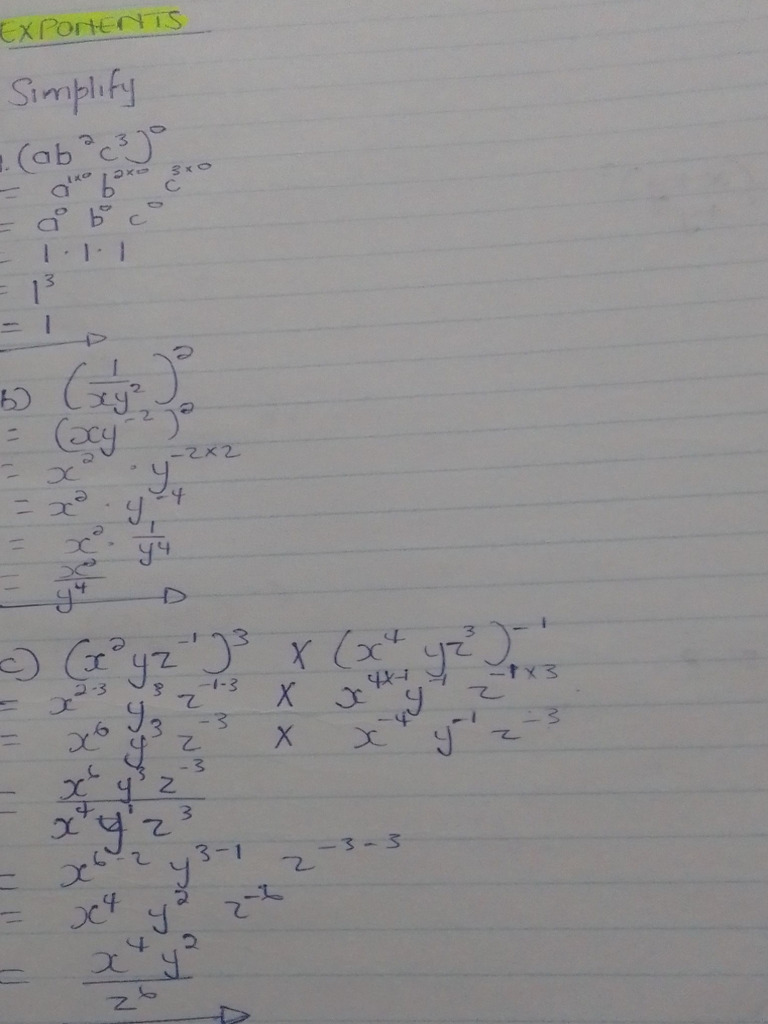 EXPONENTS
Simplify
1. (ab²c³)⁰
= a¹ˣ⁰ b²ˣ⁰ c³ˣ⁰
= a⁰ b⁰ c⁰
= 1 · 1 · 1
= 1³
= 1
b) (1/xy²)²
= (xy⁻²)²
= x² · y⁻²ˣ²
= x² · y⁻⁴
= x² · 1/y⁴
= x²/y⁴
c) (x²yz⁻¹)³ × (x⁴yz³)⁻¹
= x²·³ y³ z⁻¹·³ × x⁴ˣ⁻¹ y⁻¹ z⁻¹ˣ³
= x⁶ y³ z⁻³ × x⁻⁴ y⁻¹ z⁻³
= x⁶ y³ z⁻³ / x⁴ y¹ z³
= x⁶⁻² y³⁻¹ z⁻³⁻³
= x⁴ y² z⁻⁶
= x⁴y²/z⁶